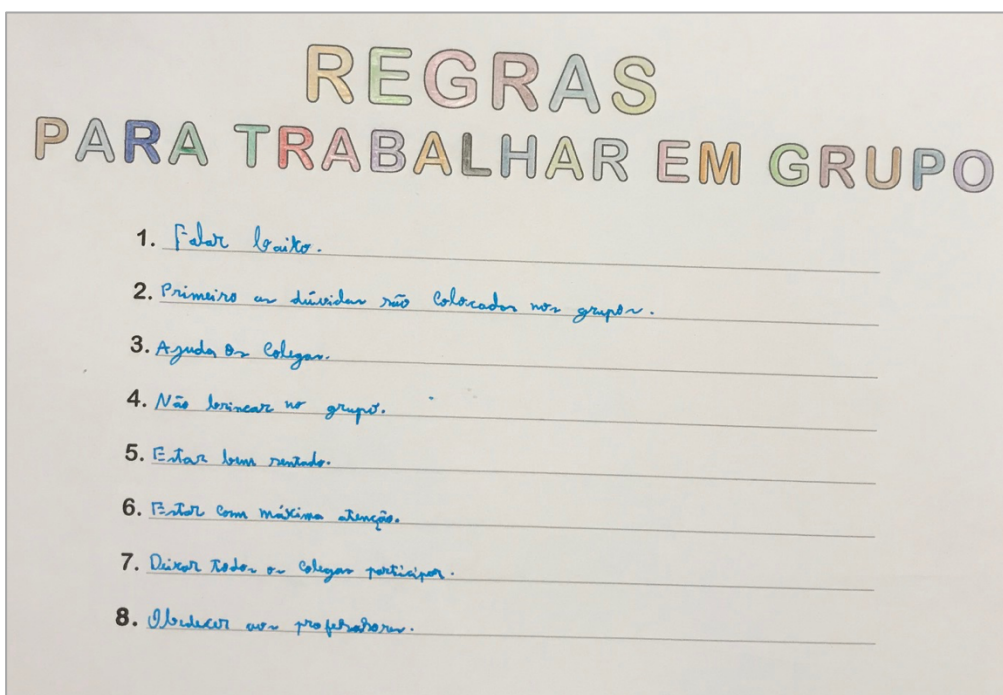 REGRAS
PARA TRABALHAR EM GRUPO
1. Falar baixo.
2. Primeiro as dúvidas são colocadas nos grupos.
3. Ajuda os colegas.
4. Não brincar no grupo.
5. Estar bem sentado.
6. Estar com máxima atenção.
7. Deixar todos os colegas participar.
8. Obedecer aos professores.